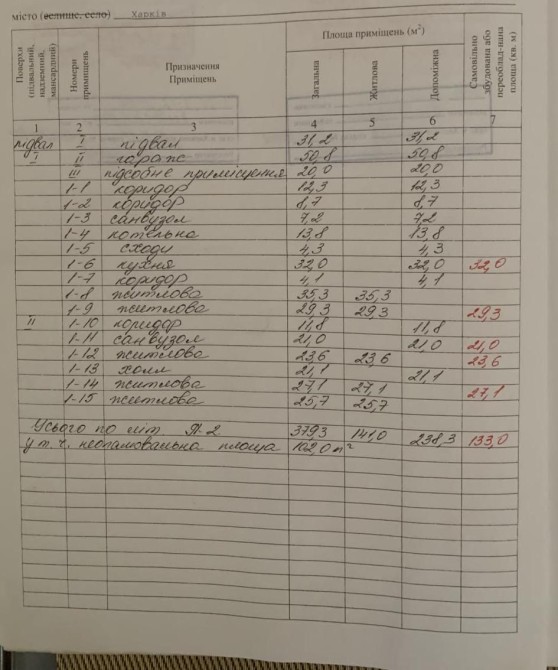 місто (селище, село) Харків
Поверхи (підвальний, надземний, мансардний) Номери приміщень Призначення Приміщень Площа приміщень (м²) Загальна Житлова Допоміжна Самовільно збудована або переобладнана площа (кв. м)
1 2 3 4 5 6 7
підвал I підвал 31,2 31,2
I II гараж 50,8 50,8
III підсобне приміщення 20,0 20,0
1-1 коридор 12,3 12,3
1-2 коридор 8,7 8,7
1-3 санвузол 7,2 7,2
1-4 котельна 13,8 13,8
1-5 сходи 4,3 4,3
1-6 кухня 32,0 32,0 32,0
1-7 коридор 4,1 4,1
1-8 житлова 35,3 35,3
1-9 житлова 29,3 29,3 29,3
II 1-10 коридор 11,8 11,8
1-11 санвузол 21,0 21,0 21,0
1-12 житлова 23,6 23,6 23,6
1-13 холл 21,1 21,1
1-14 житлова 27,1 27,1 27,1
1-15 житлова 25,7 25,7
Усього по літ. 379,3 141,0 238,3 133,0
у т.ч. неопалювальна площа 102,0 м²